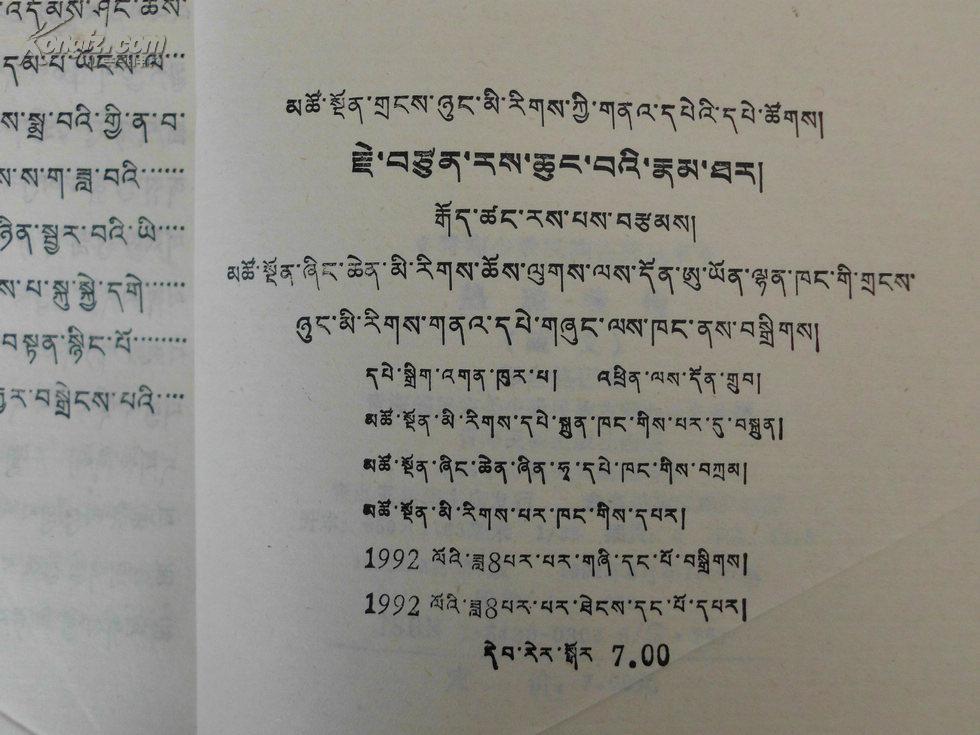 འདམས་ཤིང་ཚོས་
དམ་པ་ཡོངས་ལ་…
ས་སྨྲ་བའི་གྱི་ན་བ་
ས་ས་ག་ཟླ་བའི་……
ཉིན་སྦྱར་བའི་ཡི་…
ས་པ་སྐུ་སྐྱེ་དགེ་……
བསྟན་སྙིང་པོ་………
བསྒྲེངས་པའི་…
Kongfz.com
མཚོ་སྔོན་གྲངས་ཉུང་མི་རིགས་ཀྱི་གནའ་དཔེའི་དཔེ་ཚོགས།
རྗེ་བཙུན་རས་ཆུང་བའི་རྣམ་ཐར།
རྒོད་ཚང་རས་པས་བརྩམས།
མཚོ་སྔོན་ཞིང་ཆེན་མི་རིགས་ཆོས་ལུགས་ལས་དོན་ཨུ་ཡོན་ལྷན་ཁང་གི་གྲངས་
ཉུང་མི་རིགས་གནའ་དཔེ་གཞུང་ལས་ཁང་ནས་བསྒྲིགས།
དཔེ་སྒྲིག་འགན་ཁུར་པ། འཕྲིན་ལས་དོན་གྲུབ།
མཚོ་སྔོན་མི་རིགས་དཔེ་སྐྲུན་ཁང་གིས་པར་དུ་བསྐྲུན།
མཚོ་སྔོན་ཞིང་ཆེན་ཞིན་ཧྭ་དཔེ་ཁང་གིས་བཀྲམ།
མཚོ་སྔོན་མི་རིགས་པར་ཁང་གིས་དཔར།
1992 ལོའི་ཟླ8པར་པར་གཞི་དང་པོ་བསྒྲིགས།
1992 ལོའི་ཟླ8པར་པར་ཐེངས་དང་པོ་དཔར།
དེབ་རེར་སྒོར 7.00